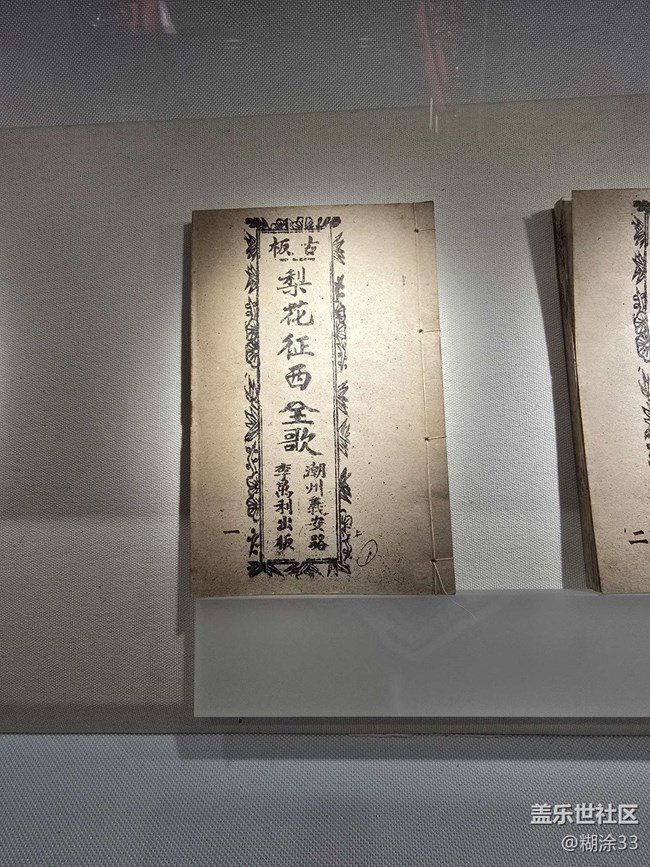 古板
梨花征西全歌
潮州義安路
李萬利出板
一
上
二
盖乐世社区
@糊涂33